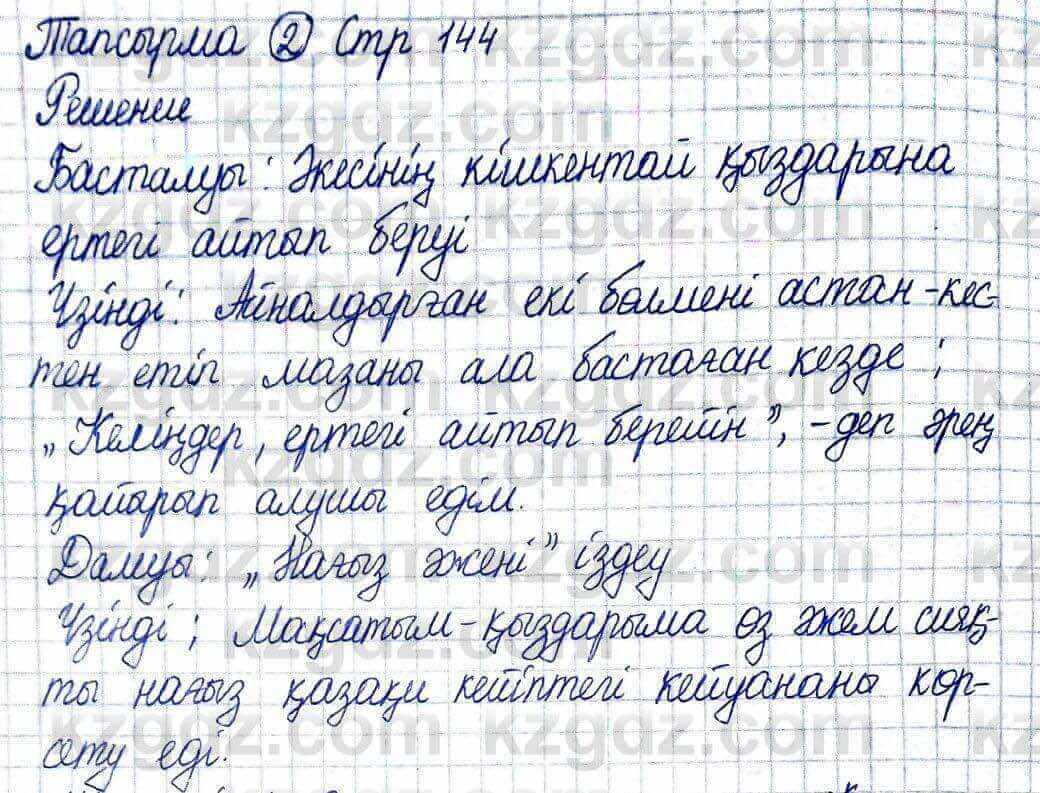 Тапсырма 2 Стр 144
Решение
Басталуы: Әкесінің кішкентай қыздарына
ертегі айтып беруі
Үзінді: Айналдырған екі бөлмені астан-кес-
тен етіп мазаны ала бастаған кезде;
„Келіңдер, ертегі айтып берейін”, -деп әрең
қайырып алушы едім.
Дамуы: „Нағыз әжені” іздеу
Үзінді; Мақсатым-қыздарыма өз әжем сияқ-
ты нағыз қазақи кейіптегі кейуананы көр-
сету еді.